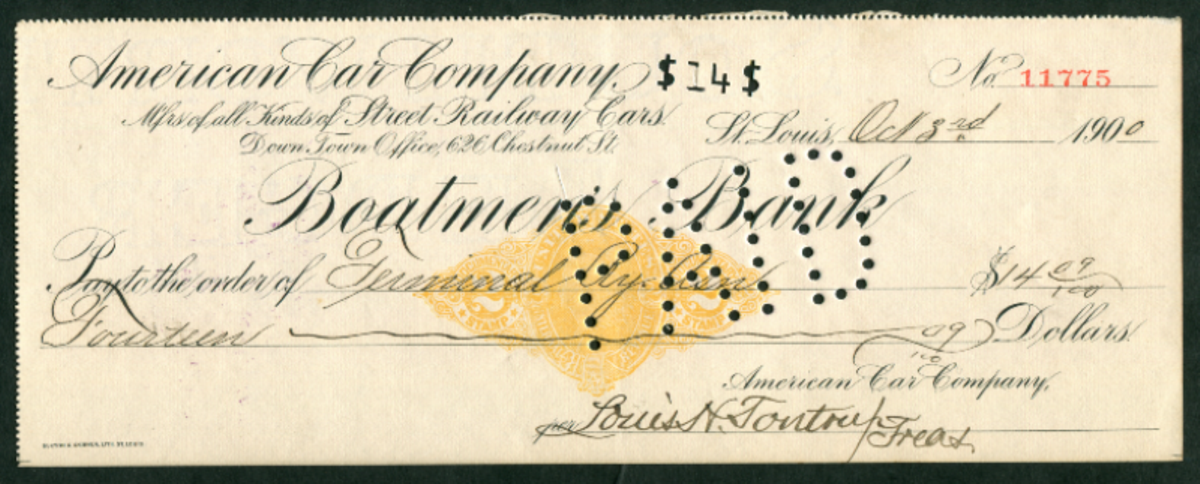 American Car Company, $14$
No. 11775
Mfrs of all Kinds of Street Railway Cars.
Down Town Office, 626 Chestnut St.
St. Louis, Oct 3rd 1900
Boatmen's Bank
PAID
Pay to the order of Terminal Ry. $14 09/100
2 STAMP 2 STAMP
Fourteen 09/100 Dollars
American Car Company,
per Louis H. Tontrup Treas